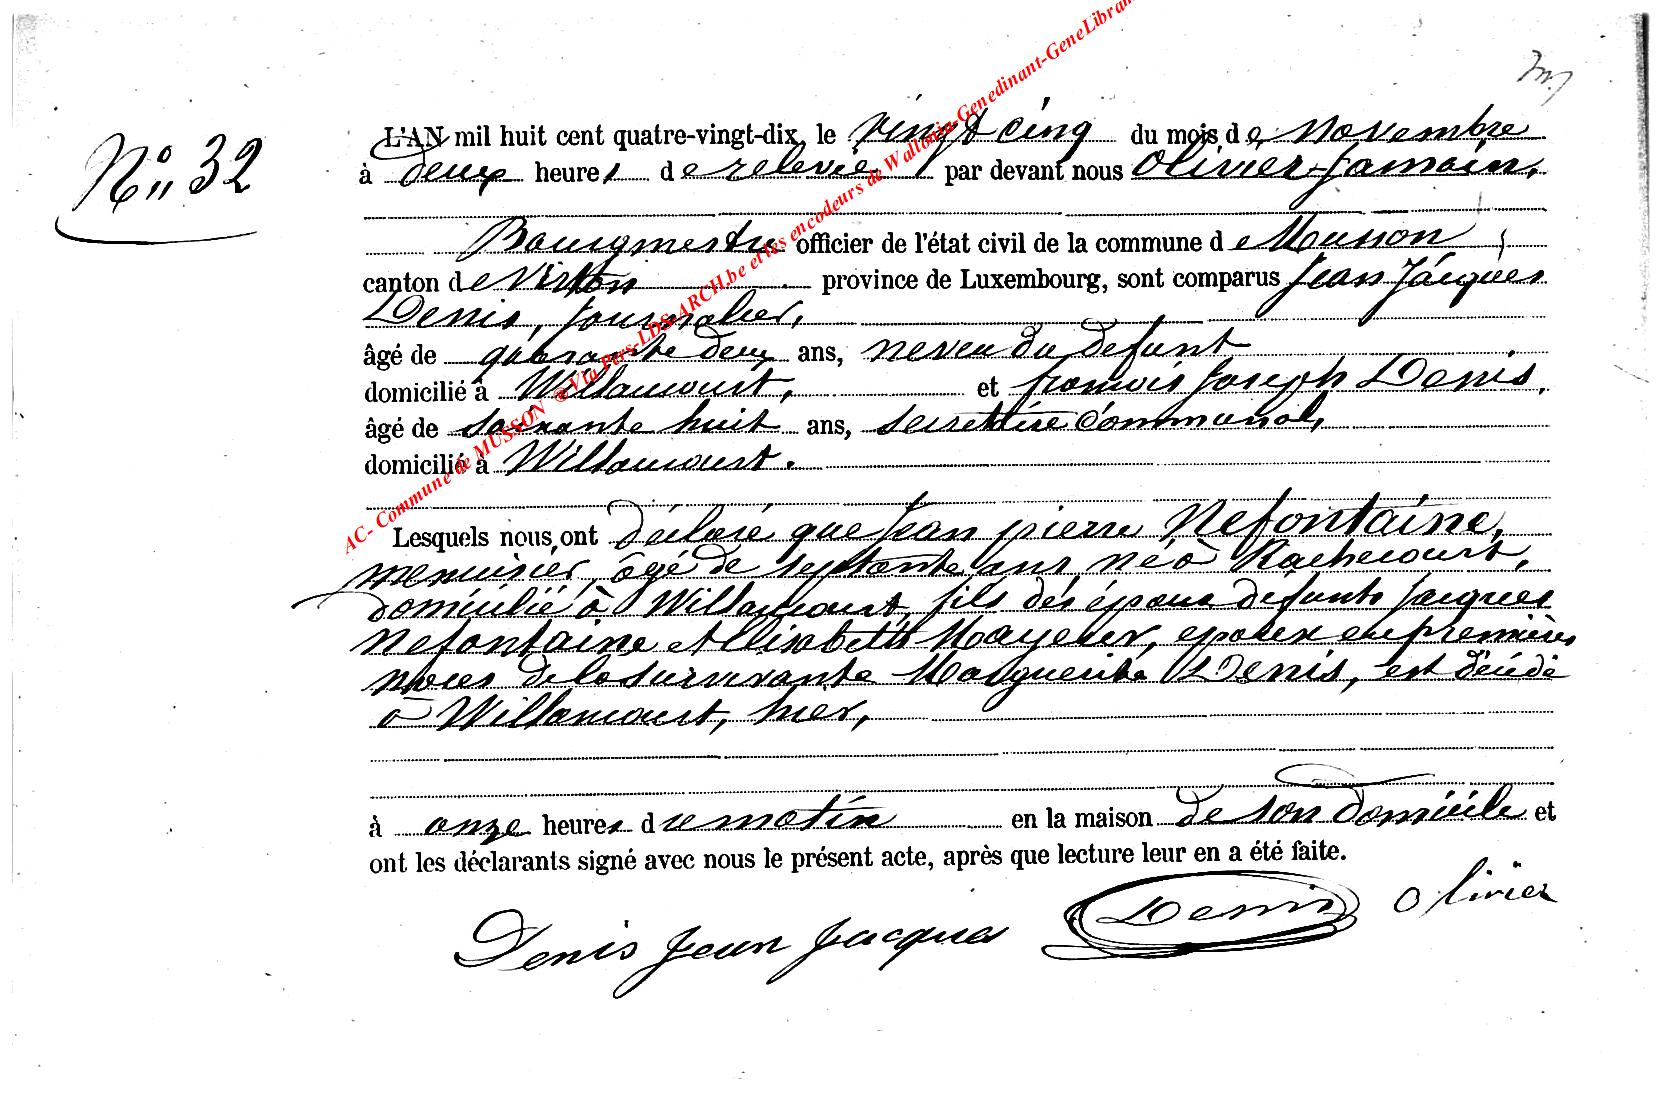 N° 32
L'AN mil huit cent quatre-vingt-dix, le vingt cinq du mois de novembre
à deux heures de relevée par devant nous Olivier Jamain,
Bourgmestre officier de l'état civil de la commune de Musson
canton de Virton province de Luxembourg, sont comparus Jean Jacques
Denis, journalier,
âgé de quarante deux ans, neveu du defunt
domicilié à Willancourt, et françois Joseph Denis,
âgé de soixante huit ans, secrétaire communal,
domicilié à Willancourt.
Lesquels nous ont déclaré que Jean pierre Nefontaine,
menuisier, âgé de septante ans né à Rachecourt,
domicilié à Willancourt, fils des époux defunts Jacques
Nefontaine et Elisabeth Mayeur, epoux en premières
noces de la survivante Marguerite Denis, est décédé
à Willancourt, hier,
à onze heures du matin en la maison de son domicile et
ont les déclarants signé avec nous le présent acte, après que lecture leur en a été faite.
Denis Jean Jacques Denis Olivier
AC- Commune de MUSSON @Via Pers-LDS-ARCH.be et les encodeurs de Wallonia-Genedinant-GeneLibran